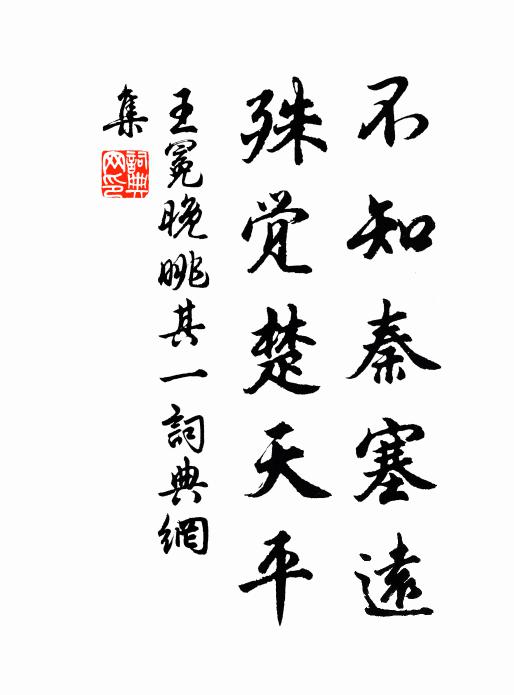 不知秦塞遠
殊觉楚天平
王冕晚眺其一詞典網
集
詞典
网印